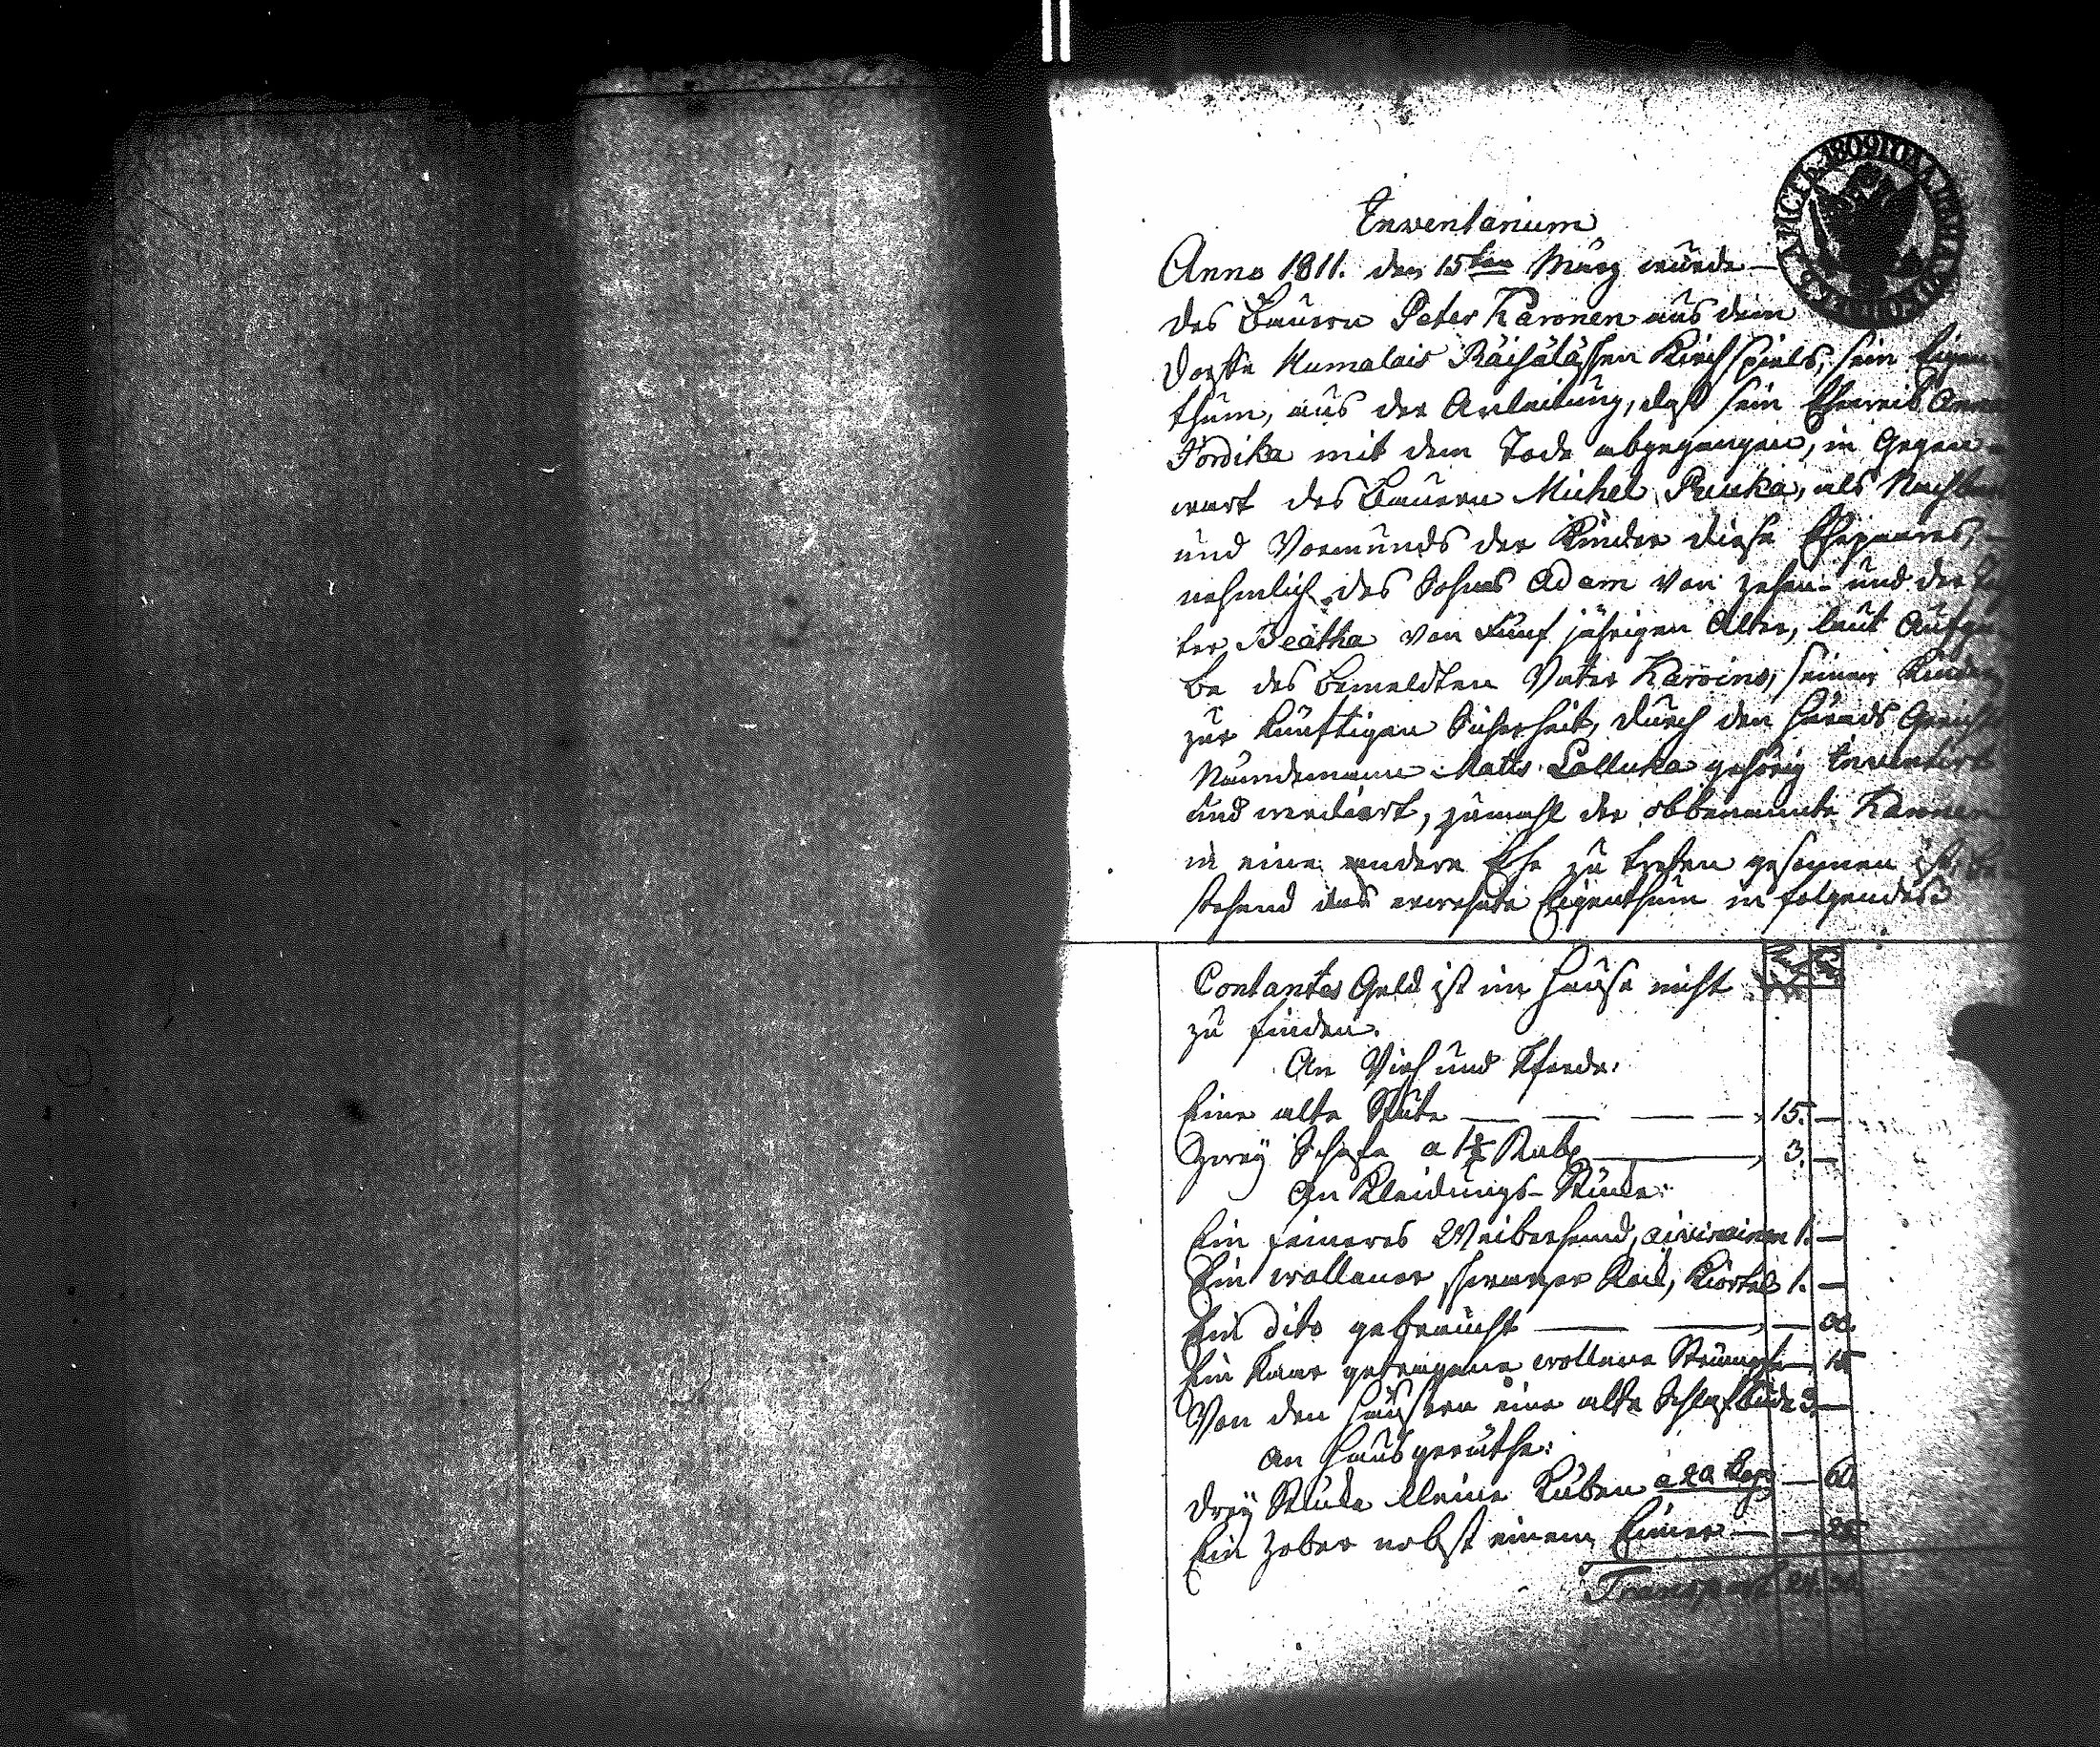 Inventarium
Anno 1811. den 15ten März wurde
des Bauern Peter Karonen aus dem
Dorffe Humalais Räisäläschen Kirchspiels, sein Eigen-
thum, aus der Anleitung, daß sein Eheweib Anna
mit dem Tode abgegangen, in Gegen-
wart des Bauern Michel Puuka, als Nachbar
und Vormunds der Kinder diese Ehepaares,
nehmlich des Sohnes Adam von zehen- und der
ter Beatha von Fünf jährigen Alter, laut Aufga-
be des bemeldten Vater Karoins, seiner Kinder
zur künftigen Sicherheit, durch den Härads Gerichts
Nämdemann Matts Lalluka gehörig Inventirt
und werdiert, zumahl der obbenannte Karonen
in eine andere Ehe zu treten gesonnen ist, be-
stehend das erwehnte Eigenthum in folgendes
Contantes Geld ist im Hause nicht
zu finden.
An Vieh und Pferde:
Eine alte Stute — 15. —
Zwey Schafe a 1½ Rub — 3. —
An Kleidungs-Stücke:
Ein feineres Weiberhemd, aivinainen 1. —
Ein wollener schwarzer Rock, Kiortel 1. —
Ein dito gebraucht —
Ein Paar getragene wollene Strümpfe — 15
Von den Häusern eine alte Schlafbude 3. —
An Hausgeräthe:
Drey Stücke kleine Kuben a 20 Cop — 60.
Ein Zober nebst einem Eimer — 25
Transport 24.